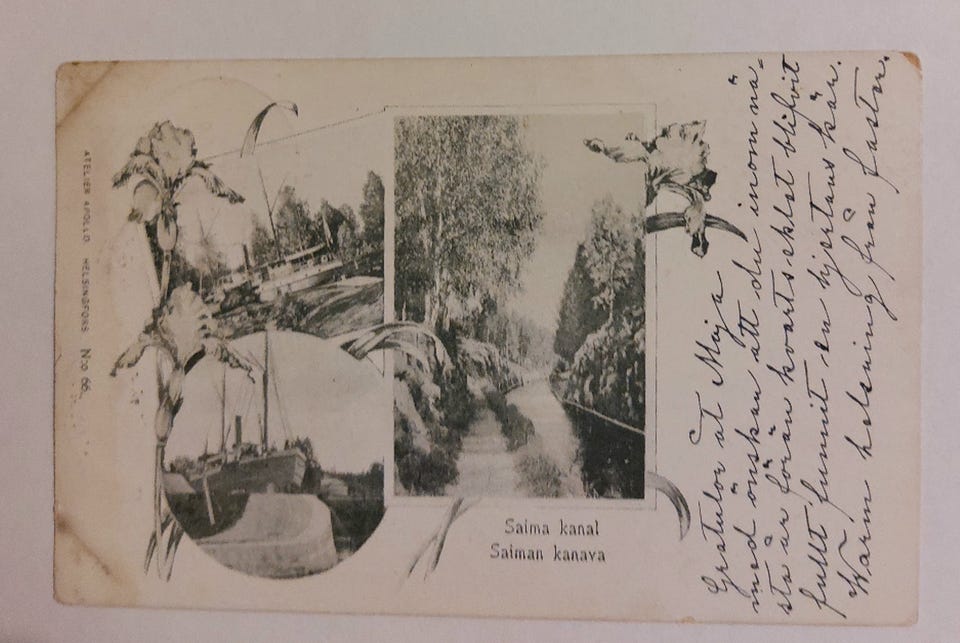 ATELIER APOLLO HELSINGFORS No 66.
Saima kanal
Saiman kanava
Gratulor åt Maja
med önskan att du inom nä-
sta år förän kvartseklet blifvit
fullt funnit en hjertans kär.
Varm helsning från faster.